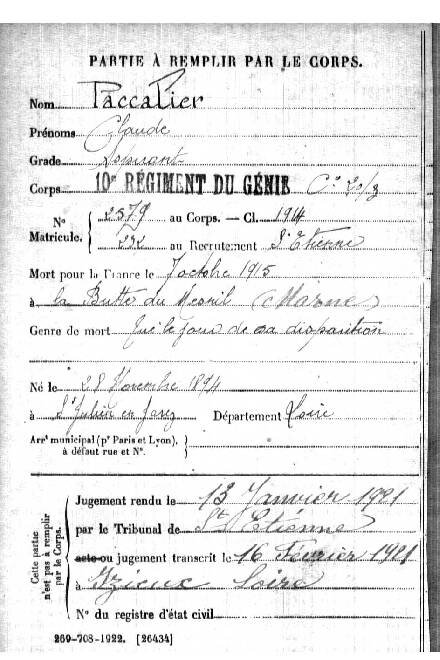 PARTIE À REMPLIR PAR LE CORPS.
Nom Paccalier
Prénoms Claude
Grade
Corps 10e RÉGIMENT DU GÉNIE Cie 20/3
N° 2579 au Corps. — Cl. 1914
Matricule. 232 au Recrutement St Etienne
Mort pour la France le 7 octobre 1915
à la Butte du Mesnil (Marne)
Genre de mort Tué le jour de sa disparition
Né le 28 Novembre 1894
à St Julien en Jarez Département Loire
Arrt municipal (pr Paris et Lyon),
à défaut rue et N°.
Cette partie
n'est pas à remplir
par le Corps.
Jugement rendu le 13 Janvier 1921
par le Tribunal de St Etienne
acte ou jugement transcrit le 16 Février 1921
à Izieux Loire
N° du registre d'état civil
269-708-1922. [26434]